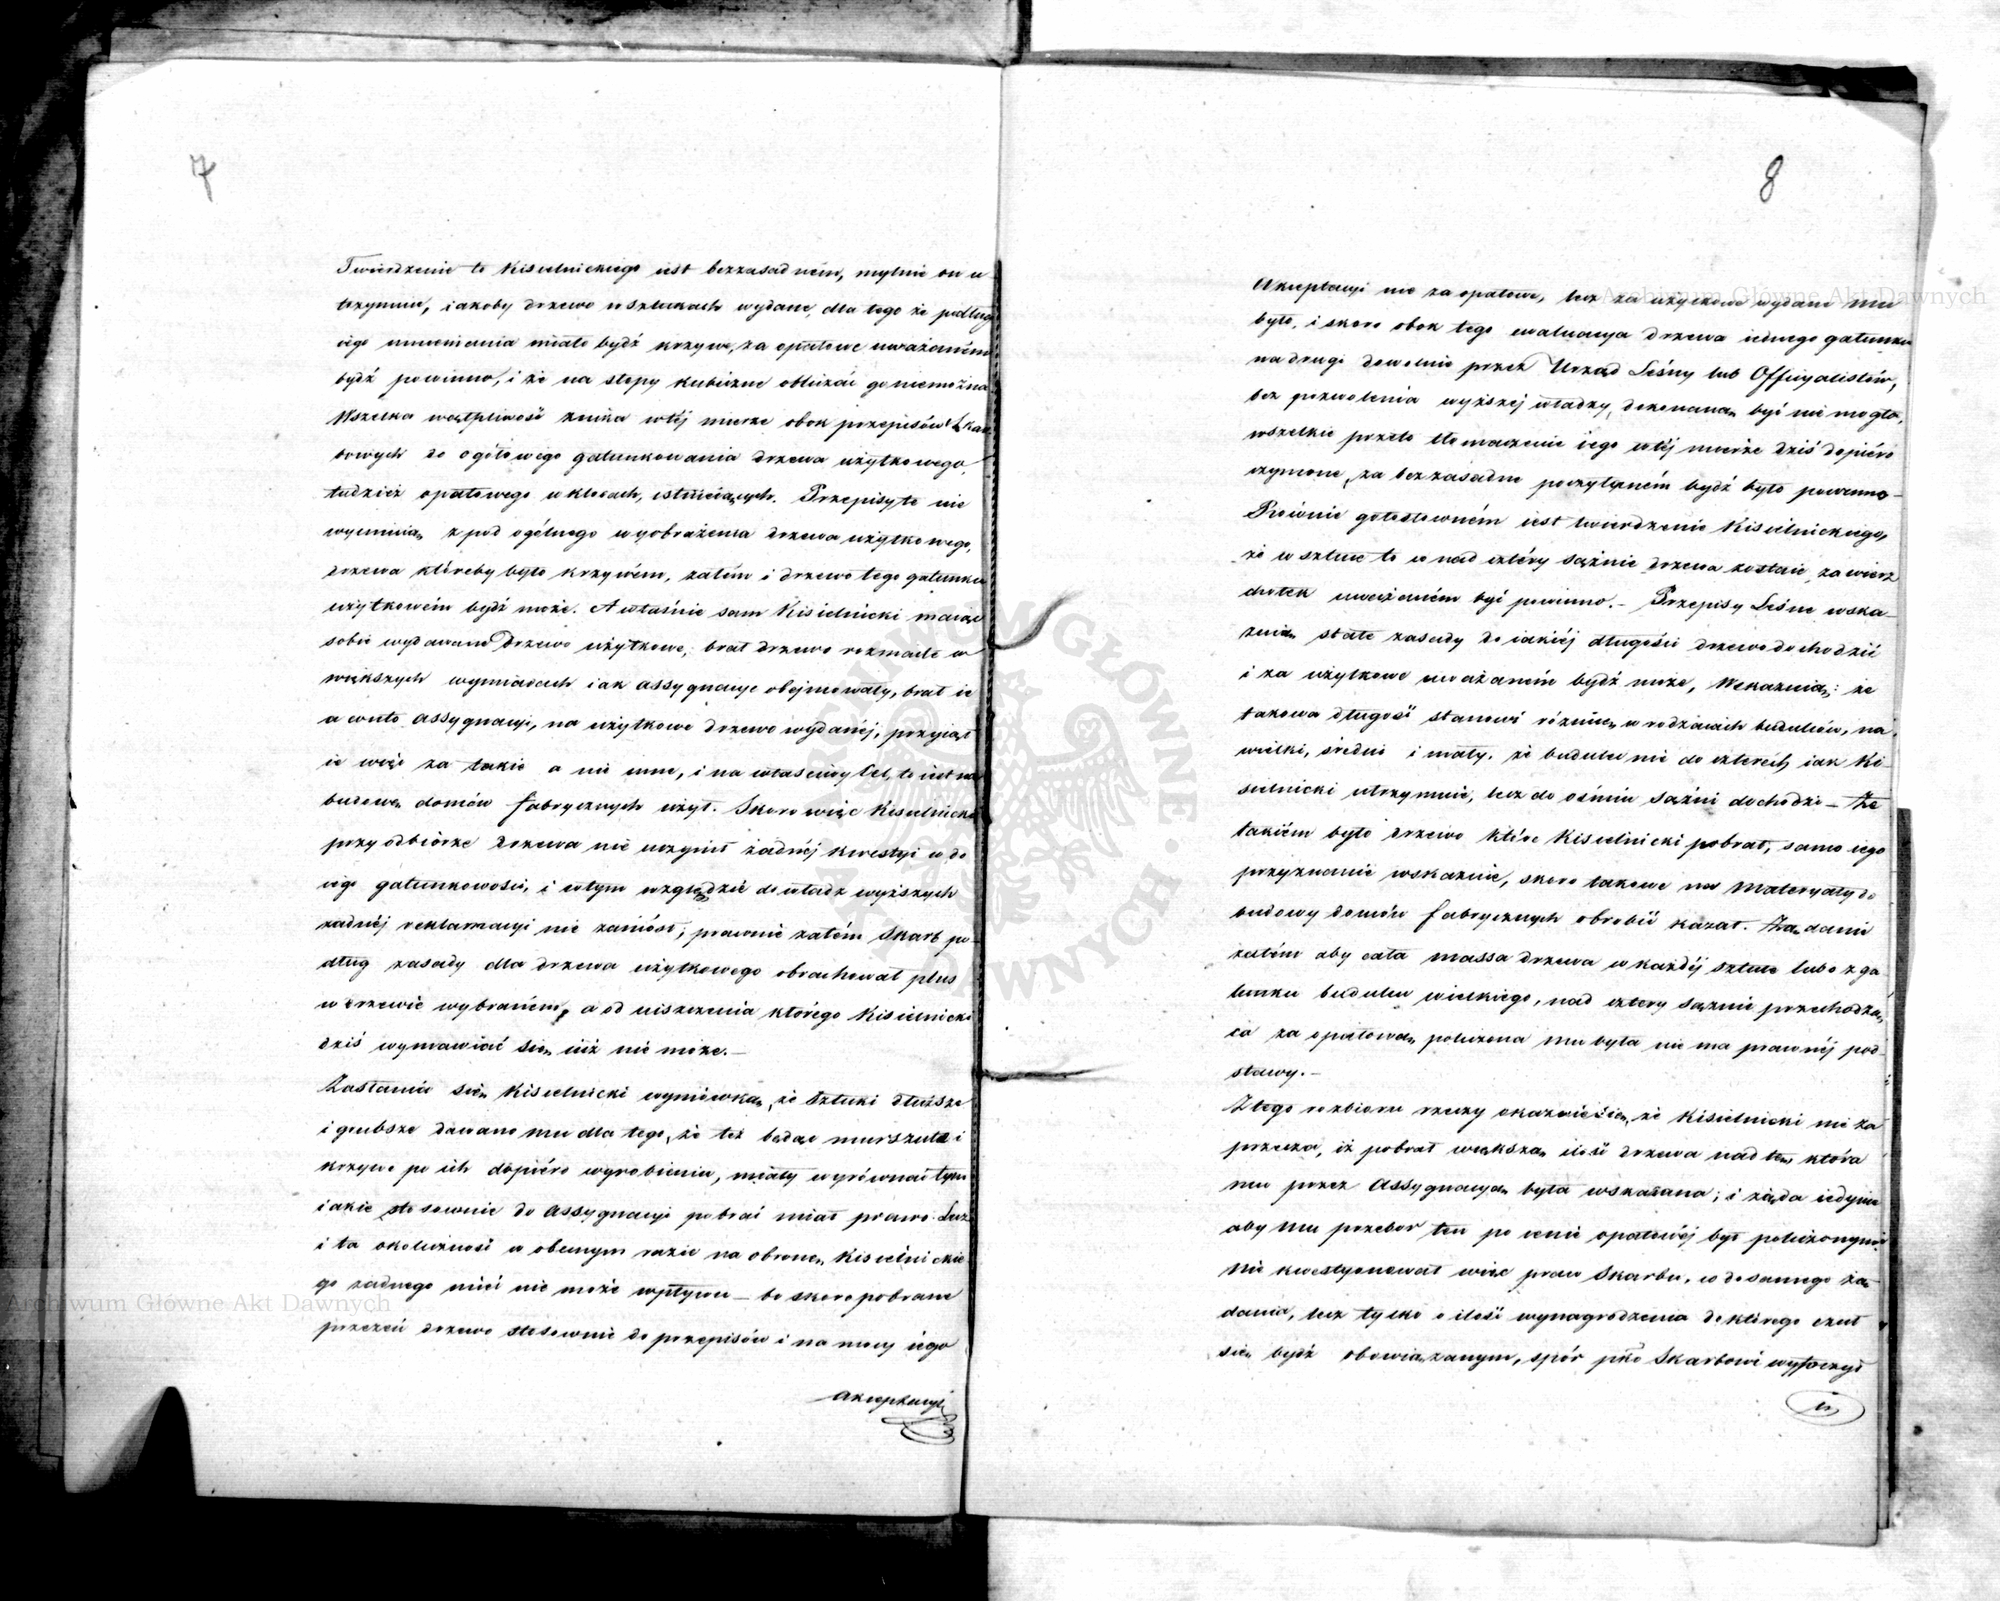 7
Twierdzenie to Kisielnickiego iest bezzasadném, mylnie on u
trzymuie, iakoby drzewo w sztukach wydane, dla tego że podług
iego mniemania miało bydź krzywe, za opałowe uważaném
bydź powinno, i że na stopy kubiczne obliczać go niemożna.
Wszelka wątpliwość znika w téj mierze obok przepisów Skar
bowych do ogółowego gatunkowania drzewa użytkowego,
tudzież opałowego w klocach, istnieiących. Przepisy te nie
wymieniaią z pod ogólnego wyobrażenia drzewa użytkowego,
drzewa któreby było krzywém, zatém i drzewo tego gatunku
użytkowém bydź może. A właśnie sam Kisielnicki maiąc
sobie wydawane drzewo użytkowe, brał drzewo rozmaite w
większych wymiarach iak assygnacye obejmowały, brał ie
a conto assygnacyi, na użytkowe drzewo wydanéj, przyiął
ie więc za takie a nie inne, i na właściwy Cel, to iest na
budowę domów fabrycznych użył. Skoro więc Kisielnicki
przy odbiórze drzewa nie uczynił żadnéj kwestyi co do
iego gatunkowości, i w tym względzie do władz wyższych
żadnéj reklamacyi nie zaniósł, prawnie zatém Skarb po-
dług zasady dla drzewa użytkowego obrachował plus
w drzewie wybraném, a od uiszczenia którego Kisielnicki
dziś wymawiać się iuż nie może. —
Zasłania się Kisielnicki wymówką, że sztuki dłuższe
i grubsze dawano mu dla tego, że też będąc murszałe i
krzywe po ich dopiéro wyrobieniu, miały wyrównać tym
iakie stosownie do assygnacyi pobrać miał prawo. Lecz
i ta okoliczność w obecnym razie na obronę Kisielnickie-
go żadnego mieć nie może wpływu — bo skoro pobrane
przezeń drzewo stosownie do przepisów i na mocy iego
akceptacyi
8
Akceptacyi nie za opałowe, lecz za użytkowe wydane mu
było, i skoro obok tego ewaluacya drzewa iednego gatunku
na drugi dowolnie przez Urząd Leśny lub Officyalistów,
bez pozwolenia wyższéj władzy, dokonaną być nie mogło,
wszelkie przeto tłomaczenie iego w téj mierze dziś dopiéro
czynione, za bezzasadne poczytaném bydź było powinno —
Równie gołosłowném iest twierdzenie Kisielnickiego,
że w sztuce to co nad cztéry sążnie drzewa zostaie, za wierz
chołek uważaném być powinno. — Przepisy Leśne wska-
zuią stałe zasady do iakiéj długości drzewo dochodzić
i za użytkowe uważaném bydź może, Wskazuią: że
takowa długość stanowi różnicę w rodzaiach budulców, na
wielki, średni i mały, że budulec nie do czterech iak Ki-
sielnicki utrzymuie, lecz do ośmiu sążni dochodzi — Że
takiém było drzewo które Kisielnicki pobrał, samo iego
przyznanie wskazuie, skoro takowe na materyały do
budowy domów fabrycznych obrobić kazał. Żądanie
zatém aby cała massa drzewa w każdéj sztuce lubo z ga
tunku budulcu wielkiego, nad cztery sążnie przechodzą
ca za opałową policzona mu była nie ma prawnéj pod-
stawy. —
Z tego rozbioru rzeczy okazuie się, że Kisielnicki nie za
przecza, iż pobrał większą ilość drzewa nad tę która
mu przez Assygnacyą była wskazana; i żąda iedynie
aby mu przebor ten po cenie opałowéj był policzonym.
Nie kwestyonował więc praw Skarbu, co do samego żą-
dania, lecz tylko o ilość wynagrodzenia do którego czuł
się bydź obowiązanym, spór pko Skarbowi wytoczył